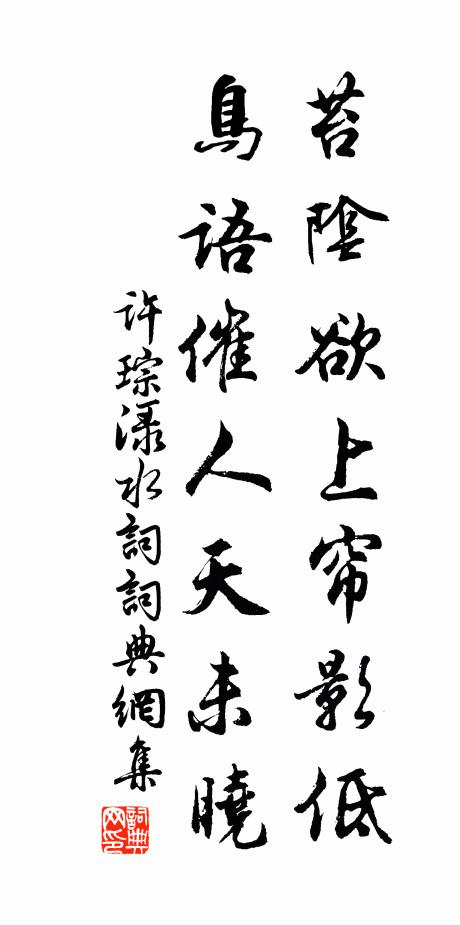 苔陰欲上帘影低
鳥語催人天未曉
許琮漾水詞詞典網集
詞典网印